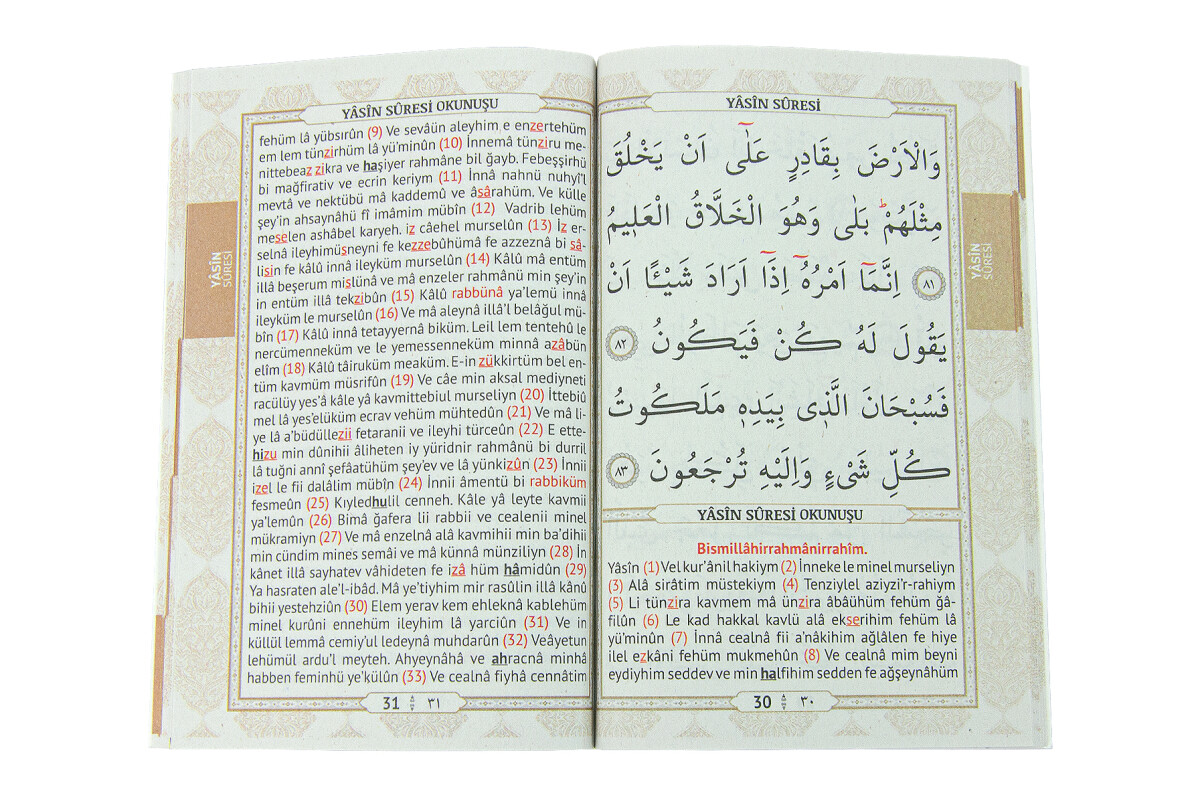 YÂSÎN SÛRESİ
وَالْاَرْضَ بِقَادِرٍ عَلٰٓى اَنْ يَخْلُقَ
مِثْلَهُمْ بَلٰى وَهُوَ الْخَلَّاقُ الْعَلٖيمُ
﴿٨١﴾ اِنَّمَٓا اَمْرُهُٓ اِذَٓا اَرَادَ شَيْـًٔا اَنْ
يَقُولَ لَهُ كُنْ فَيَكُونُ ﴿٨٢﴾
فَسُبْحَانَ الَّذٖى بِيَدِهٖ مَلَكُوتُ
كُلِّ شَىْءٍ وَاِلَيْهِ تُرْجَعُونَ ﴿٨٣﴾
YÂSÎN SÛRESİ OKUNUŞU
Bismillâhirrahmânirrahîm.
Yâsîn (1) Vel kur'ânil hakiym (2) İnneke le minel murseliyn
(3) Alâ sirâtim müstekiym (4) Tenziylel aziyzi'r-rahiym
(5) Li tünzira kavmem mâ ünzira âbâühüm fehüm ğâ-
filûn (6) Le kad hakkal kavlü alâ ekserihim fehüm lâ
yü'minûn (7) İnnâ cealnâ fii a'nâkihim ağlâlen fe hiye
ilel ezkâni fehüm mukmehûn (8) Ve cealnâ mim beyni
eydiyhim seddev ve min halfihim sedden fe ağşeynâhüm
30 ٣٠
YÂSÎN
SÛRESİ
YÂSÎN SÛRESİ OKUNUŞU
fehüm lâ yübsırûn (9) Ve sevâün aleyhim e enzertehüm
em lem tünzirhüm lâ yü'minûn (10) İnnemâ tünziru me-
nittebeaz zikra ve haşiyer rahmâne bil ğayb. Febeşşirhü
bi mağfirativ ve ecrin keriym (11) İnnâ nahnü nuhyî'l
mevtâ ve nektübü mâ kaddemû ve âsârahüm. Ve külle
şey'in ahsaynâhü fî imâmim mübîn (12) Vadrib lehüm
meselen ashâbel karyeh. iz câehel murselûn (13) İz er-
selnâ ileyhimüsneyni fe kezzebûhümâ fe azzeznâ bi sâ-
lisin fe kâlû innâ ileyküm murselûn (14) Kâlû mâ entüm
illâ beşerum mislünâ ve mâ enzeler rahmânü min şey'in
in entüm illâ tekzibûn (15) Kâlû rabbünâ ya'lemü innâ
ileyküm le murselûn (16) Ve mâ aleynâ illâ'l belâğul mü-
bîn (17) Kâlû innâ tetayyernâ biküm. Leil lem tentehû le
nercümenneküm ve le yemessenneküm minnâ azâbün
elîm (18) Kâlû tâiruküm meaküm. E-in zükkirtüm bel en-
tüm kavmüm müsrifûn (19) Ve câe min aksal mediyneti
racülüy yes'â kâle yâ kavmittebiul murseliyn (20) İttebiû
mel lâ yes'elüküm ecrav vehüm mühtedûn (21) Ve mâ li-
ye lâ a'büdüllezii fetaranii ve ileyhi türceûn (22) E ette-
hizu min dûnihii âliheten iy yüridnir rahmânü bi durril
lâ tuğni annî şefâatühüm şey'ev ve lâ yünkizûn (23) İnnii
izel le fii dalâlim mübîn (24) İnnii âmentü bi rabbiküm
fesmeûn (25) Kıyledhulil cenneh. Kâle yâ leyte kavmii
ya'lemûn (26) Bimâ ğafera lii rabbii ve cealenii minel
mükramiyn (27) Ve mâ enzelnâ alâ kavmihii min ba'dihii
min cündim mines semâi ve mâ künnâ münziliyn (28) İn
kânet illâ sayhatev vâhideten fe izâ hüm hâmidûn (29)
Ya hasraten ale'l-ibâd. Mâ ye'tiyhim mir rasûlin illâ kânû
bihii yestehziûn (30) Elem yerav kem ehleknâ kablehüm
minel kurûni ennehüm ileyhim lâ yarciûn (31) Ve in
küllül lemmâ cemiy'ul ledeynâ muhdarûn (32) Veâyetun
lehümül ardu'l meyteh. Ahyeynâhâ ve ahracnâ minhâ
habben feminhü ye'külûn (33) Ve cealnâ fiyhâ cennâtim
31 ٣١
YÂSÎN
SÛRESİ